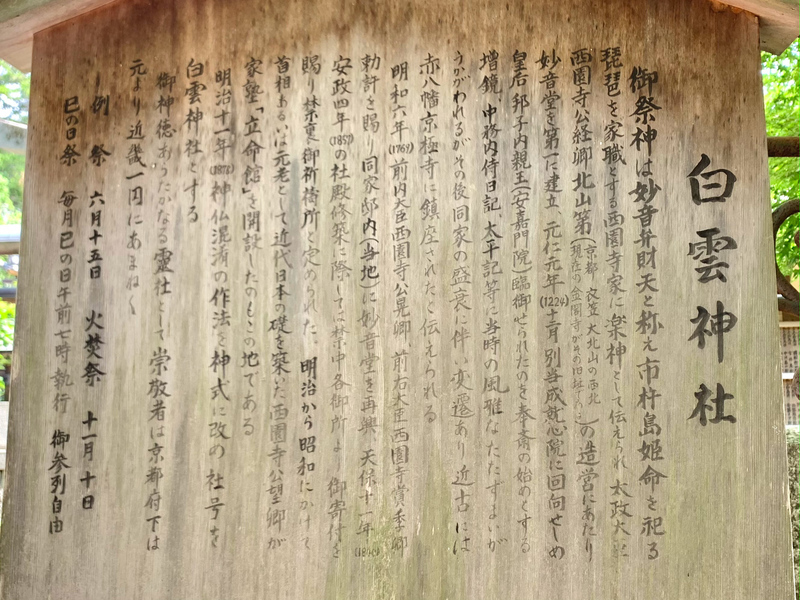 白雲神社
御祭神は妙音弁財天と称え市杵島姫命を祀る
琵琶を家職とする西園寺家に楽神として伝えられ 太政大臣
西園寺公経卿北山第(京都 衣笠 大北山の西北
現在の金閣寺がその旧址)の造営にあたり
妙音堂を第一に建立 元仁元年(1224)十二月 別当成就心院に回向せしめ
皇后邦子内親王(安嘉門院)臨御せられたのを奉斎の始めとする
増鏡、中務内侍日記、太平記等に当時の風雅なたたずまいが
うかがわれるがその後同家の盛衰に伴い変遷あり 近古には
赤八幡京極寺に鎮座されたと伝えられる
明和六年(1769)前内大臣西園寺公晃卿、前右大臣西園寺賞季卿
勅許を賜り同家邸内(当地)に妙音堂を再興 天保十一年(1840)
安政四年(1857)の社殿修築に際しては禁中各御所より御寄付を
賜り 禁裏御祈祷所と定められた、明治から昭和にかけて
首相あるいは元老として近代日本の礎を築いた西園寺公望卿が
家塾「立命館」を開設したのもこの地である
明治十一年(1878)神仏混淆の作法を神式に改め 社号を
白雲神社とする
御神徳あらたかなる霊社として崇敬者は京都府下は
元より近畿一円にあまねく
例祭 六月十五日 火焚祭 十一月十日
巳の日祭 毎月巳の日午前七時執行 御参列自由